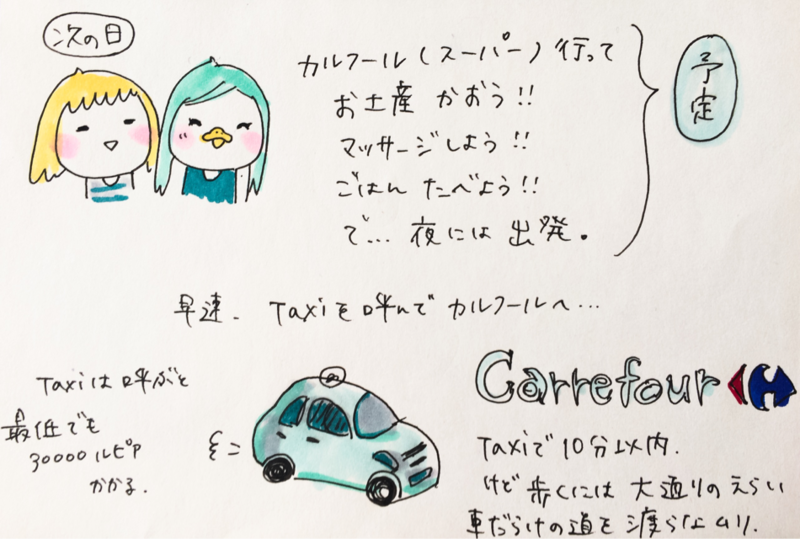 次の日
カルフール(スーパー)行って
お土産 かおう!!
マッサージしよう!!
ごはん たべよう!!
で… 夜には 出発.
予定
早速. Taxiを呼んで カルフールへ…
Taxiは 呼ぶと
最低でも
30000ルピア
かかる.
Carrefour
Taxiで 10分以内.
けど 歩くには 大通りの えらい
車だらけの道を 渡らなムリ.